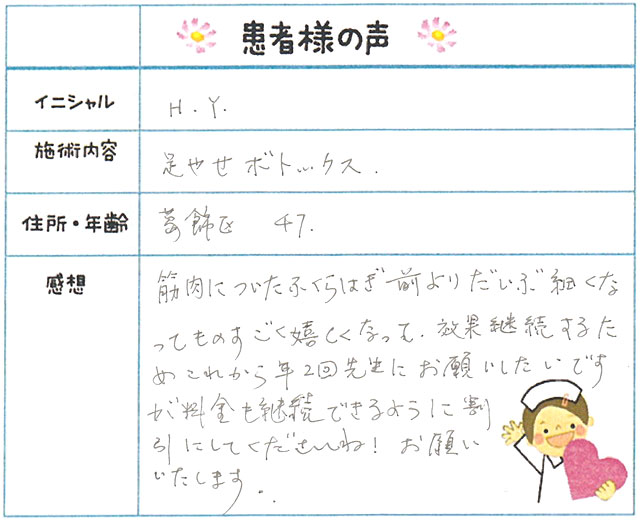 患者様の声
イニシャル H.Y.
施術内容 足やせボトックス.
住所・年齢 葛飾区 47.
感想 筋肉についたふくらはぎ前よりだいぶ細くな
ってものすごく嬉しくなって.効果継続するた
めこれから年2回先生にお願いしたいです
が料金も継続できるように割
引にしてくださいね!お願い
いたします.